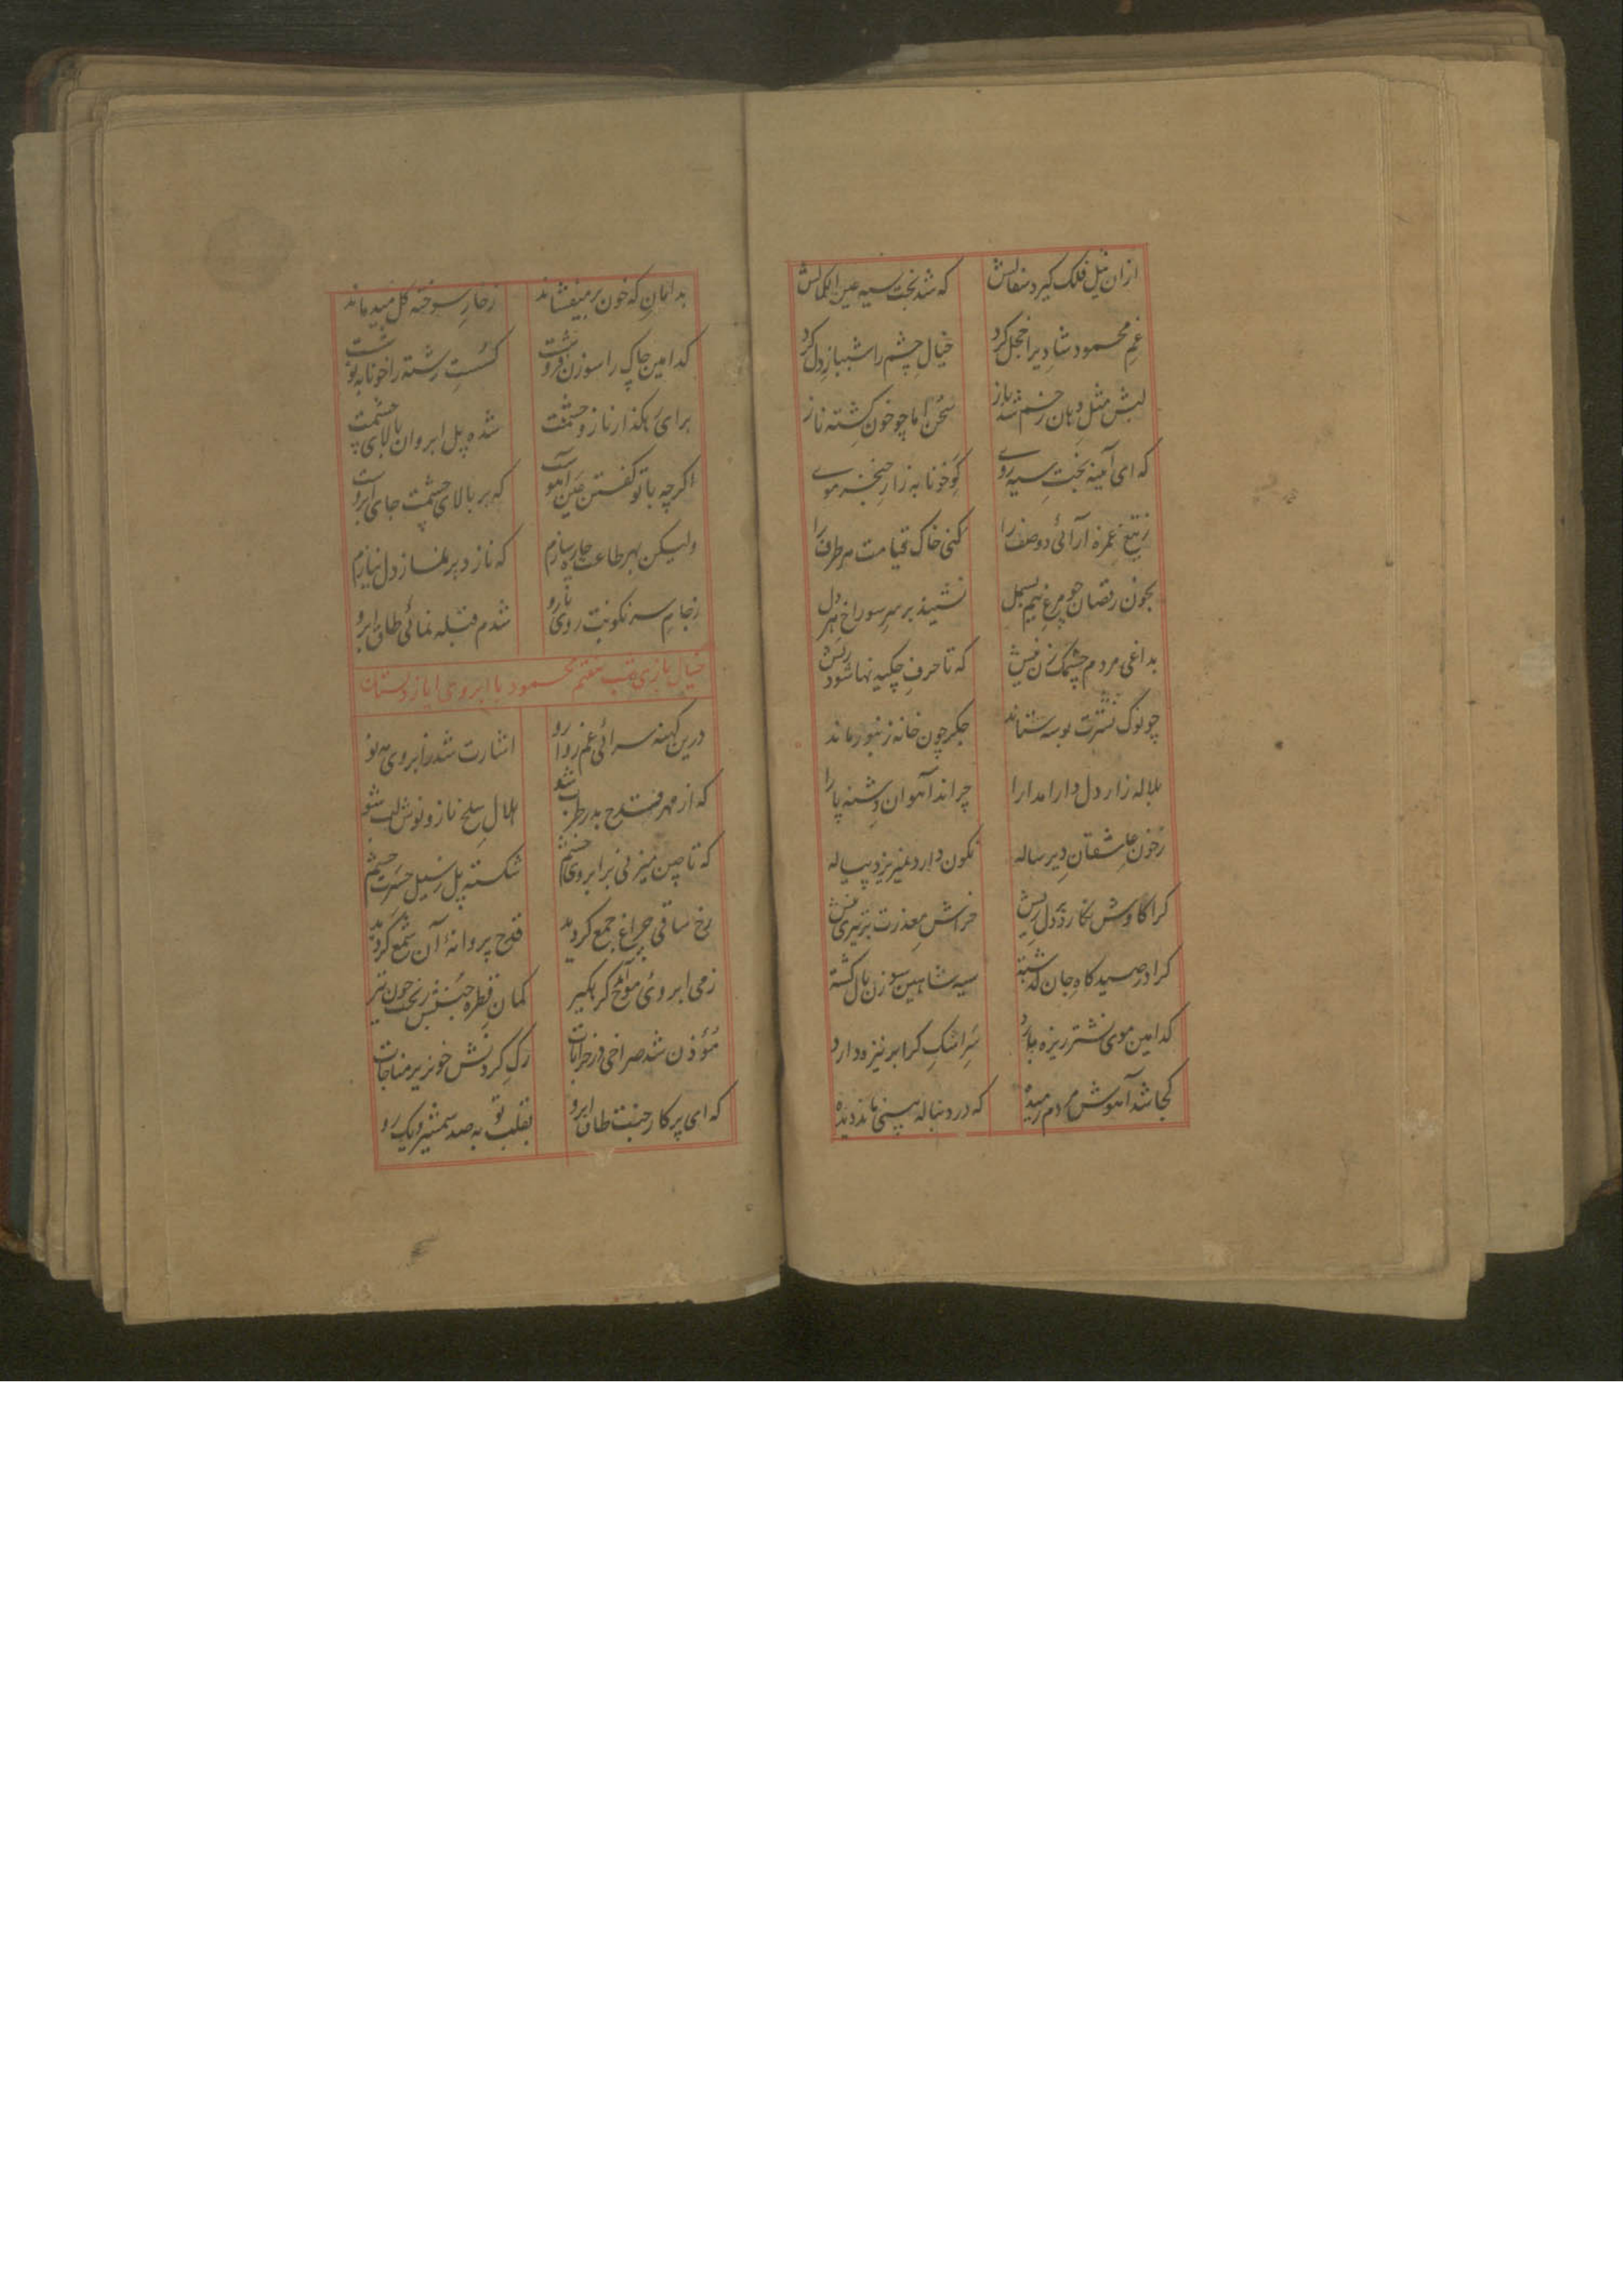 ازان نیل فلک کیرد سفالش که شد بخت سیه عین الکمالش
غم محمود شادیرا خجل کرد خیال چشم را شهباز دل کرد
لبش مثل دهان زخم شد باز سخن اما چو خون کشته ناز
که ای آمینه بخت سیه روے خونابه زار خنجر موے
ز تیغ غمزه آرائی دو صف را کنی خاک قیامت هر طرف را
بخون رقصان چو مرغ نیم بسمل نشیند بر سر سوراخ هر دل
بداغی مردم چشمک زن نیش که تا حرف چکیدنها شود ریش
چو نوک نشترت بوسه ستاند جکر چون خانه زنبور ماند
بلاله زار دل دارا مدارا چراند آهوان دشنه پا را
ز خون عاشقان دیر ساله نکون دارد غیریزد پیاله
کرا کاوش نکارد بر دل ریش خراش معذرت تیزی نیش
کرا در صیدکاه جان کذشته سیه شاهین سوزن بال کشته
کدامین موی نشتر ریزه دارد سر اشک کرا بر نیزه دارد
کجا شد آهوش مردم رمیده که در دنباله بینی ماند دیده
بدامان که خون بر میفشاند ز خار سوخته کل میدماند
کدامین چاک را سوزن فروشت کسست رشته را خونابه نوشت
برای بکذار ناز و حشمت شده پل ابروان بالای چشمت
اکرچه با تو کفتن عین آهوست که بر بالای چشمت جای ابروست
ولیکن بهر طاعت چاره سازم که نازد بر نماز دل نیازم
ز جام سرنکونت روی تا رو شدم قبله نمائی طاق ابرو
خیال بازی قلب هفتم محمود با ابروی ایاز دلستان
درین کهنه سرائی غم روا رو اشارت شد ز ابروی مه نو
که از مهر قدح بدر طرب شو هلال سلخ ناز و نوش لب شو
که تا چین میزنی بر ابروی خشم شکسته پل ز سیل حسرت چشم
رخ ساقی چراغ جمع کردید قدح پروانهٔ آن شمع کردید
ز می ابروی موج کرمکیر کمان قطره جنبش ریخت چون تیر
مؤذن شد صراحی در خرابات رک کردنش خونریز مناجات
که ای پرکار جفت طاق ابرو بقلب تو به صد شمشیر و یک رو